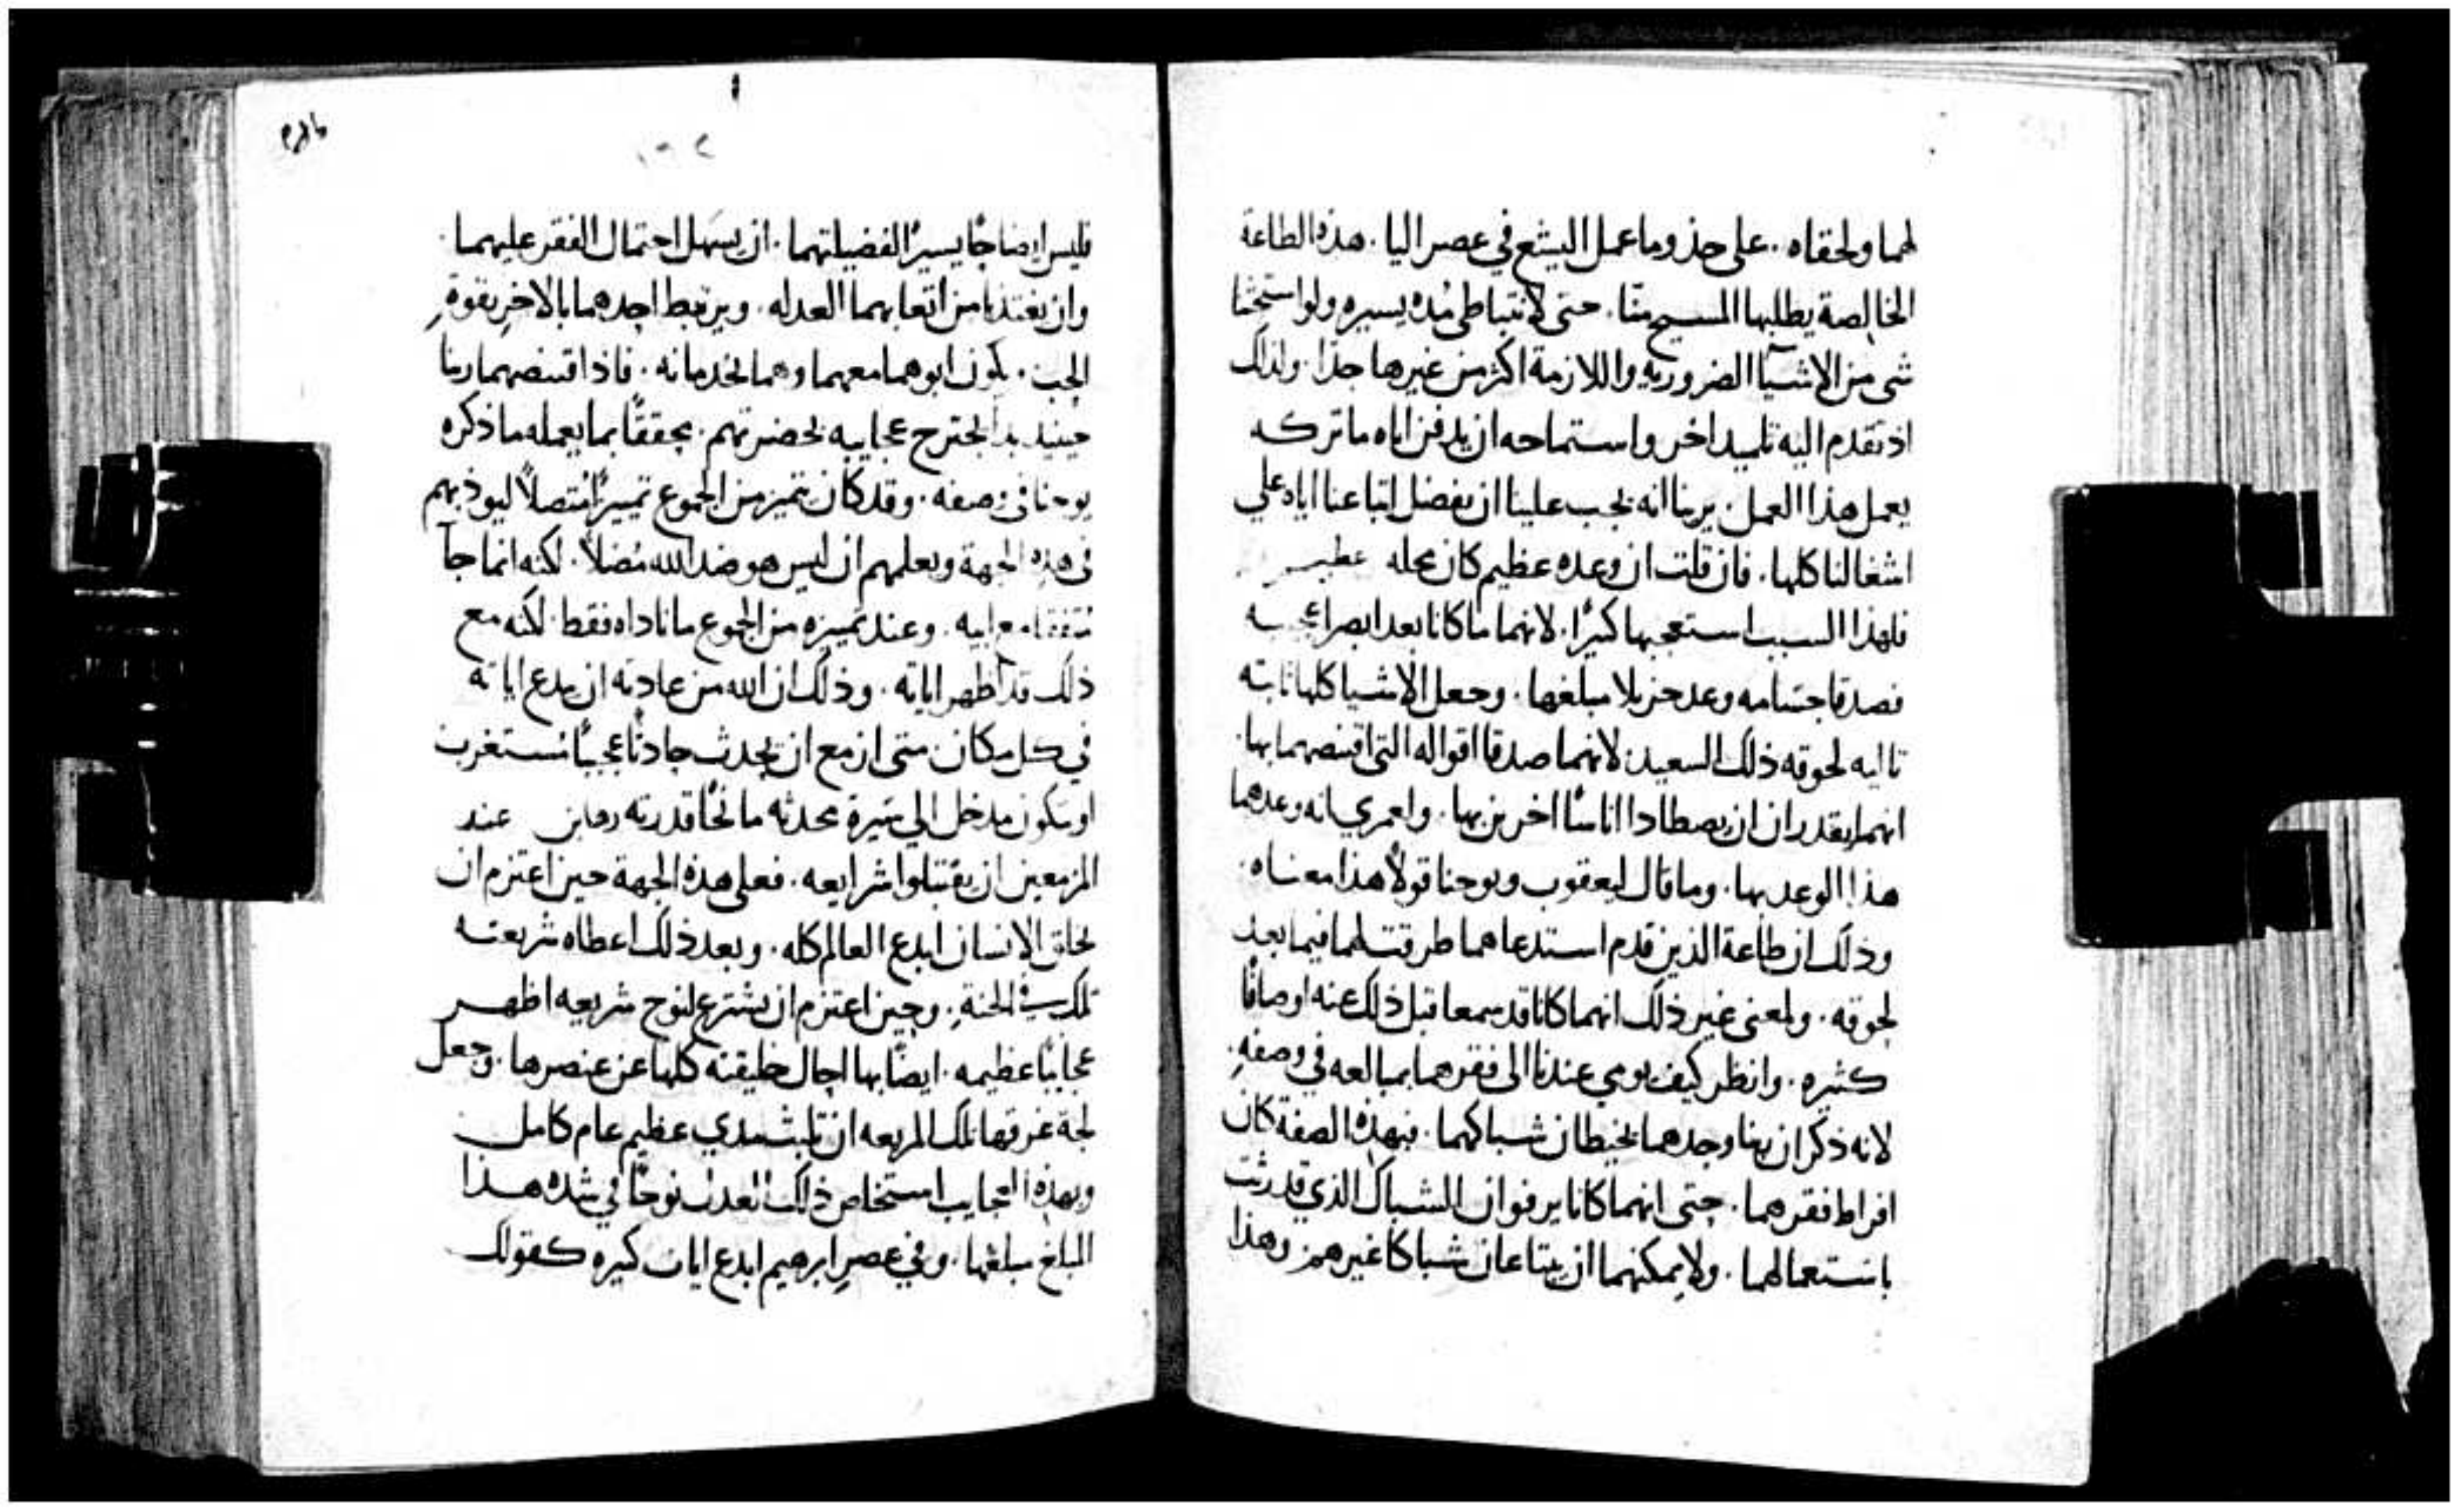 لهما ولحقاه . على حذو ما عمل اليشع في عصر اليا . هذه الطاعة
الخالصة يطلبها المسيح منا . حتى لا نتباطى مده يسيره ولو استحثنا
شي من الاشيا الضروريه واللازمة اكثر من غيرها جدا . ولذلك
اذ تقدم اليه تلميد اخر واستماحه ان يدفن اباه ما تركه
يعمل هذا العمل . يرينا انه يجب علينا ان نفضل اتباعنا اياه علي
اشغالنا كلها . فان قلت ان وعده عظيم كان محله عظيم
فلهذا السبب استعجبهما كثيرًا . لانهما ما كانا بعد ابصرا عجبه
فصدقا جسامه وعد جزيلا مبلغها . وجعلا الاشيا كلها ثانيه
تاليه لحوقه ذلك السعيد . لانهما صدقا اقواله التي اقتنصهما بها .
انهما يقدران ان يصطادا اناسًا اخرين بها . ولعمري انه وعدهما
هذا الوعد بها . وما قال ليعقوب ويوحنا قولًا هذا معناه .
وذلك ان طاعة الذين قدم استدعاهما طرقت لهما فيما بعد
لحوقه . ولمعنى غير ذلك انهما كانا قد سمعا قبل ذلك عنه اوصافًا
كثيره . وانظر كيف يومي عندنا الى فقرهما بمبالغه في وصفه .
لانه ذكر ان ربنا وجدهما يخيطان شباكهما . فبهذه الصفة كان
افراط فقرهما . حتى انهما كانا يرفوان الشباك الذي قد رثت
باستعمالهما . ولا يمكنهما ان يبتاعان شباكا غيرهم وهذا
فليس ايضاحًا يسيرًا لفضيلتهما . ان يسهل احتمال الفقر عليهما .
وان يغتذيا من اتعابهما العدله . ويرتبط احدهما بالاخر بقوة
الحب . يكون ابوهما معهما وهما يخدمانه . فاذ اقتنصهما ربنا
حينيد بدا يجترح عجايبه بحضرتهم . محققًا بما يعمله ما ذكره
يوحنا في وصفه . وقد كان يتميز من الجموع تمييزًا متصلًا ليوذبهم
في هذه الجهة ويعلمهم ان ليس هو ضد الله مضلًا . لكنه انما جا
متفقا مع ابيه . وعند تمييزه من الجموع ما ناداه فقط . لكنه مع
ذلك قد اظهر اياته . وذلك ان الله من عادته ان يبدع اياته
في كل مكان متى ازمع ان يحدث حادثًا عجيبًا مستغرب
او يكون مدخل الي سيرة محدثه مانحًا قدرته رهاين عند
المزمعين ان يقتبلوا شرايعه . فعلى هذه الجهة حين اعتزم ان
يخلق الانسان ابدع العالم كله . وبعد ذلك اعطاه شريعته
تلك في الجنة . وحين اعتزم ان يشترع لنوح شريعه اظهر
عجايبًا عظيمه . ايضًا بها احال خليقته كلها عن عنصرها . وجعل
لجة غرقها تلك المريعه ان تلبث مدي عظيم عام كامل
وبهذه العجايب استخلص ذلك العدل نوحًا في شده هذا
المبلغ مبلغها . وفي عصر ابرهيم ابدع ايات كثيره كقولك